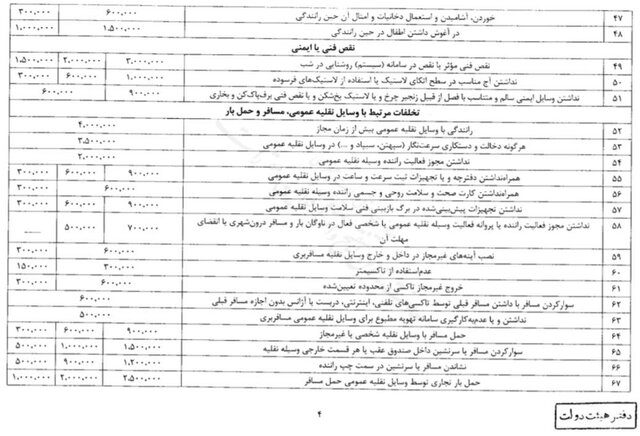 ۴۷ خوردن، آشامیدن و استعمال دخانیات و امثال آن حین رانندگی ۶۰۰،۰۰۰ ۳۰۰،۰۰۰
۴۸ در آغوش داشتن اطفال در حین رانندگی ۱،۵۰۰،۰۰۰ ۱،۰۰۰،۰۰۰
نقص فنی یا ایمنی
۴۹ نقص فنی مؤثر یا نقص در سامانه (سیستم) روشنایی در شب ۳،۰۰۰،۰۰۰ ۲،۰۰۰،۰۰۰ ۱،۵۰۰،۰۰۰
۵۰ نداشتن آج مناسب در سطح اتکای لاستیک یا استفاده از لاستیک‌های فرسوده ۱،۰۰۰،۰۰۰ ۶۰۰،۰۰۰ ۳۰۰،۰۰۰
۵۱ نداشتن وسایل ایمنی سالم و متناسب با فصل از قبیل زنجیر چرخ و یا لاستیک یخ‌شکن و یا نقص فنی برف‌پاک‌کن و بخاری ۹۰۰،۰۰۰ ۶۰۰،۰۰۰
تخلفات مرتبط با وسایل نقلیه عمومی، مسافر و حمل بار
۵۲ رانندگی با وسایل نقلیه عمومی بیش از زمان مجاز ۴،۰۰۰،۰۰۰
۵۳ هرگونه دخالت و دستکاری سرعت‌نگار (سپهتن، سیباد و ...) در وسایل نقلیه عمومی ۳،۵۰۰،۰۰۰
۵۴ نداشتن مجوز فعالیت راننده وسیله نقلیه عمومی ۲،۰۰۰،۰۰۰
۵۵ همراه‌نداشتن دفترچه و یا تجهیزات ثبت سرعت و ساعت در وسایل نقلیه عمومی ۹۰۰،۰۰۰ ۶۰۰،۰۰۰ ۳۰۰،۰۰۰
۵۶ همراه‌نداشتن کارت صحت و سلامت روحی و جسمی راننده وسیله نقلیه عمومی ۶۰۰،۰۰۰ ۳۰۰،۰۰۰
۵۷ نداشتن تجهیزات پیش‌بینی‌شده در برگ بازبینی فنی سلامت وسایل نقلیه عمومی ۹۰۰،۰۰۰ ۶۰۰،۰۰۰ ۳۰۰،۰۰۰
۵۸ نداشتن مجوز فعالیت راننده یا پروانه فعالیت وسیله نقلیه عمومی یا شخصی فعال در ناوگان بار و مسافر درون‌شهری یا انقضای ۷۰۰،۰۰۰ ۵۰۰،۰۰۰
مهلت آن
۵۹ نصب آینه‌های غیرمجاز در داخل و خارج وسایل نقلیه مسافربری ۶۰۰،۰۰۰ ۳۰۰،۰۰۰
۶۰ عدم‌استفاده از تاکسیمتر ۳۰۰،۰۰۰ ۱۵۰،۰۰۰
۶۱ خروج غیرمجاز تاکسی از محدوده تعیین‌شده ۶۰۰،۰۰۰ ۳۰۰،۰۰۰
۶۲ سوارکردن مسافر با داشتن مسافر قبلی توسط تاکسی‌های تلفنی، اینترنتی، دربست یا آژانس بدون اجازه مسافر قبلی ۶۰۰،۰۰۰
۶۳ نداشتن و یا عدم‌به‌کارگیری سامانه تهویه مطبوع برای وسایل نقلیه عمومی مسافربری ۵۰۰،۰۰۰
۶۴ حمل مسافر با وسایل نقلیه شخصی یا غیرمجاز ۹۰۰،۰۰۰ ۶۰۰،۰۰۰ ۳۰۰،۰۰۰
۶۵ سوارکردن مسافر یا سرنشین داخل صندوق عقب یا هر قسمت خارجی وسیله نقلیه ۱،۵۰۰،۰۰۰ ۱،۰۰۰،۰۰۰ ۵۰۰،۰۰۰
۶۶ نشاندن مسافر یا سرنشین در سمت چپ راننده ۱،۲۰۰،۰۰۰ ۹۰۰،۰۰۰ ۵۰۰،۰۰۰
۶۷ حمل بار تجاری توسط وسایل نقلیه عمومی حمل مسافر ۲،۵۰۰،۰۰۰ ۲،۰۰۰،۰۰۰ ۱،۰۰۰،۰۰۰
۴
دفتر هیئت دولت